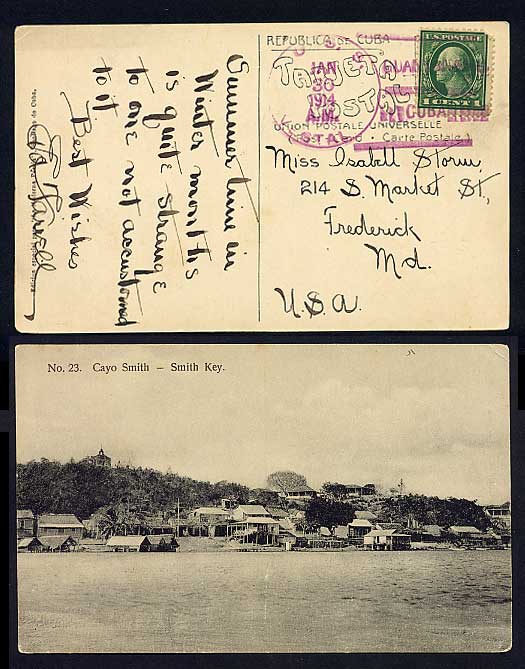 REPUBLICA DE CUBA
TARJETA
POSTAL
UNION POSTALE UNIVERSELLE
Carte Postale
U.S.
JAN
30
1914
A.M.
CUBA
U.S. POSTAGE
1 CENT 1
Summer time in
Winter months
is quite strange
to one not accustomed
to it
Best Wishes
Miss Isabell Storm,
214 S. Market St,
Frederick
Md.
U.S.A.
No. 23. Cayo Smith – Smith Key.